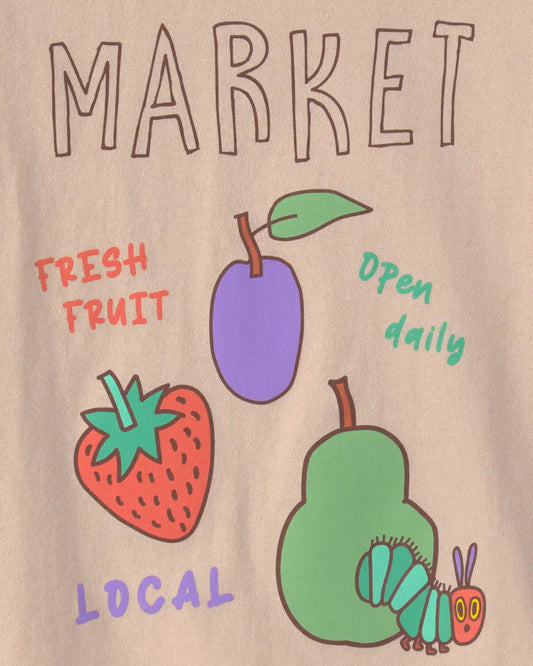 MARKET
FRESH
FRUIT
Open
daily
LOCAL